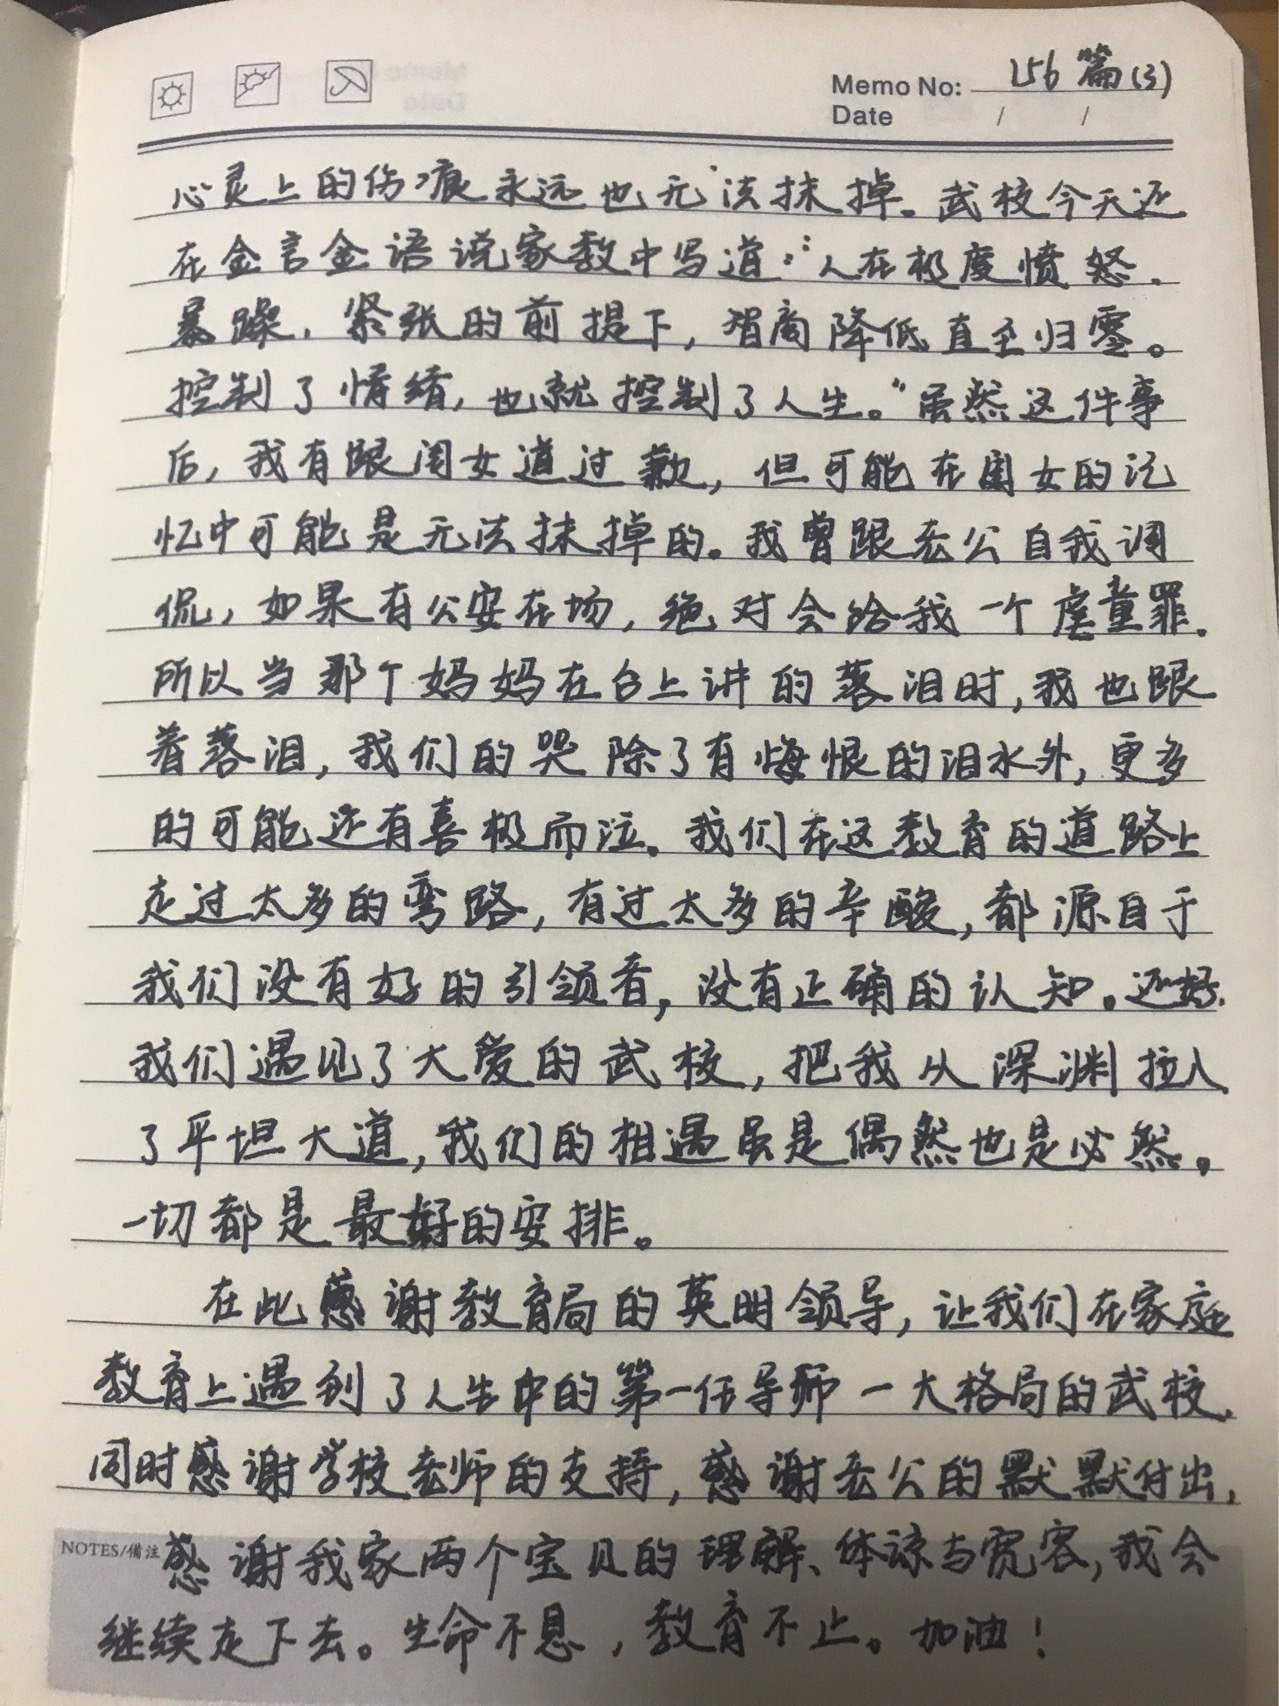 Memo No: 156篇(3)
Date / /
心灵上的伤痕永远也无法抹掉。武校今天还
在金言金语说家教中写道:“人在极度愤怒、
暴躁、紧张的前提下,智商降低直至归零。
控制了情绪,也就控制了人生。”虽然这件事
后,我有跟闺女道过歉,但可能在闺女的记
忆中可能是无法抹掉的。我曾跟老公自我调
侃,如果有公安在场,绝对会给我一个虐童罪。
所以当那个妈妈在台上讲的落泪时,我也跟
着落泪,我们的哭除了有悔恨的泪水外,更多
的可能还有喜极而泣。我们在这教育的道路上
走过太多的弯路,有过太多的辛酸,都源自于
我们没有好的引领者,没有正确的认知。还好,
我们遇见了大爱的武校,把我从深渊拉入
了平坦大道,我们的相遇虽是偶然也是必然。
一切都是最好的安排。
在此感谢教育局的英明领导,让我们在家庭
教育上遇到了人生中的第一任导师一大格局的武校,
同时感谢学校老师的支持,感谢老公的默默付出,
NOTES/備注 感谢我家两个宝贝的理解、体谅与宽容,我会
继续走下去。生命不息,教育不止。加油!